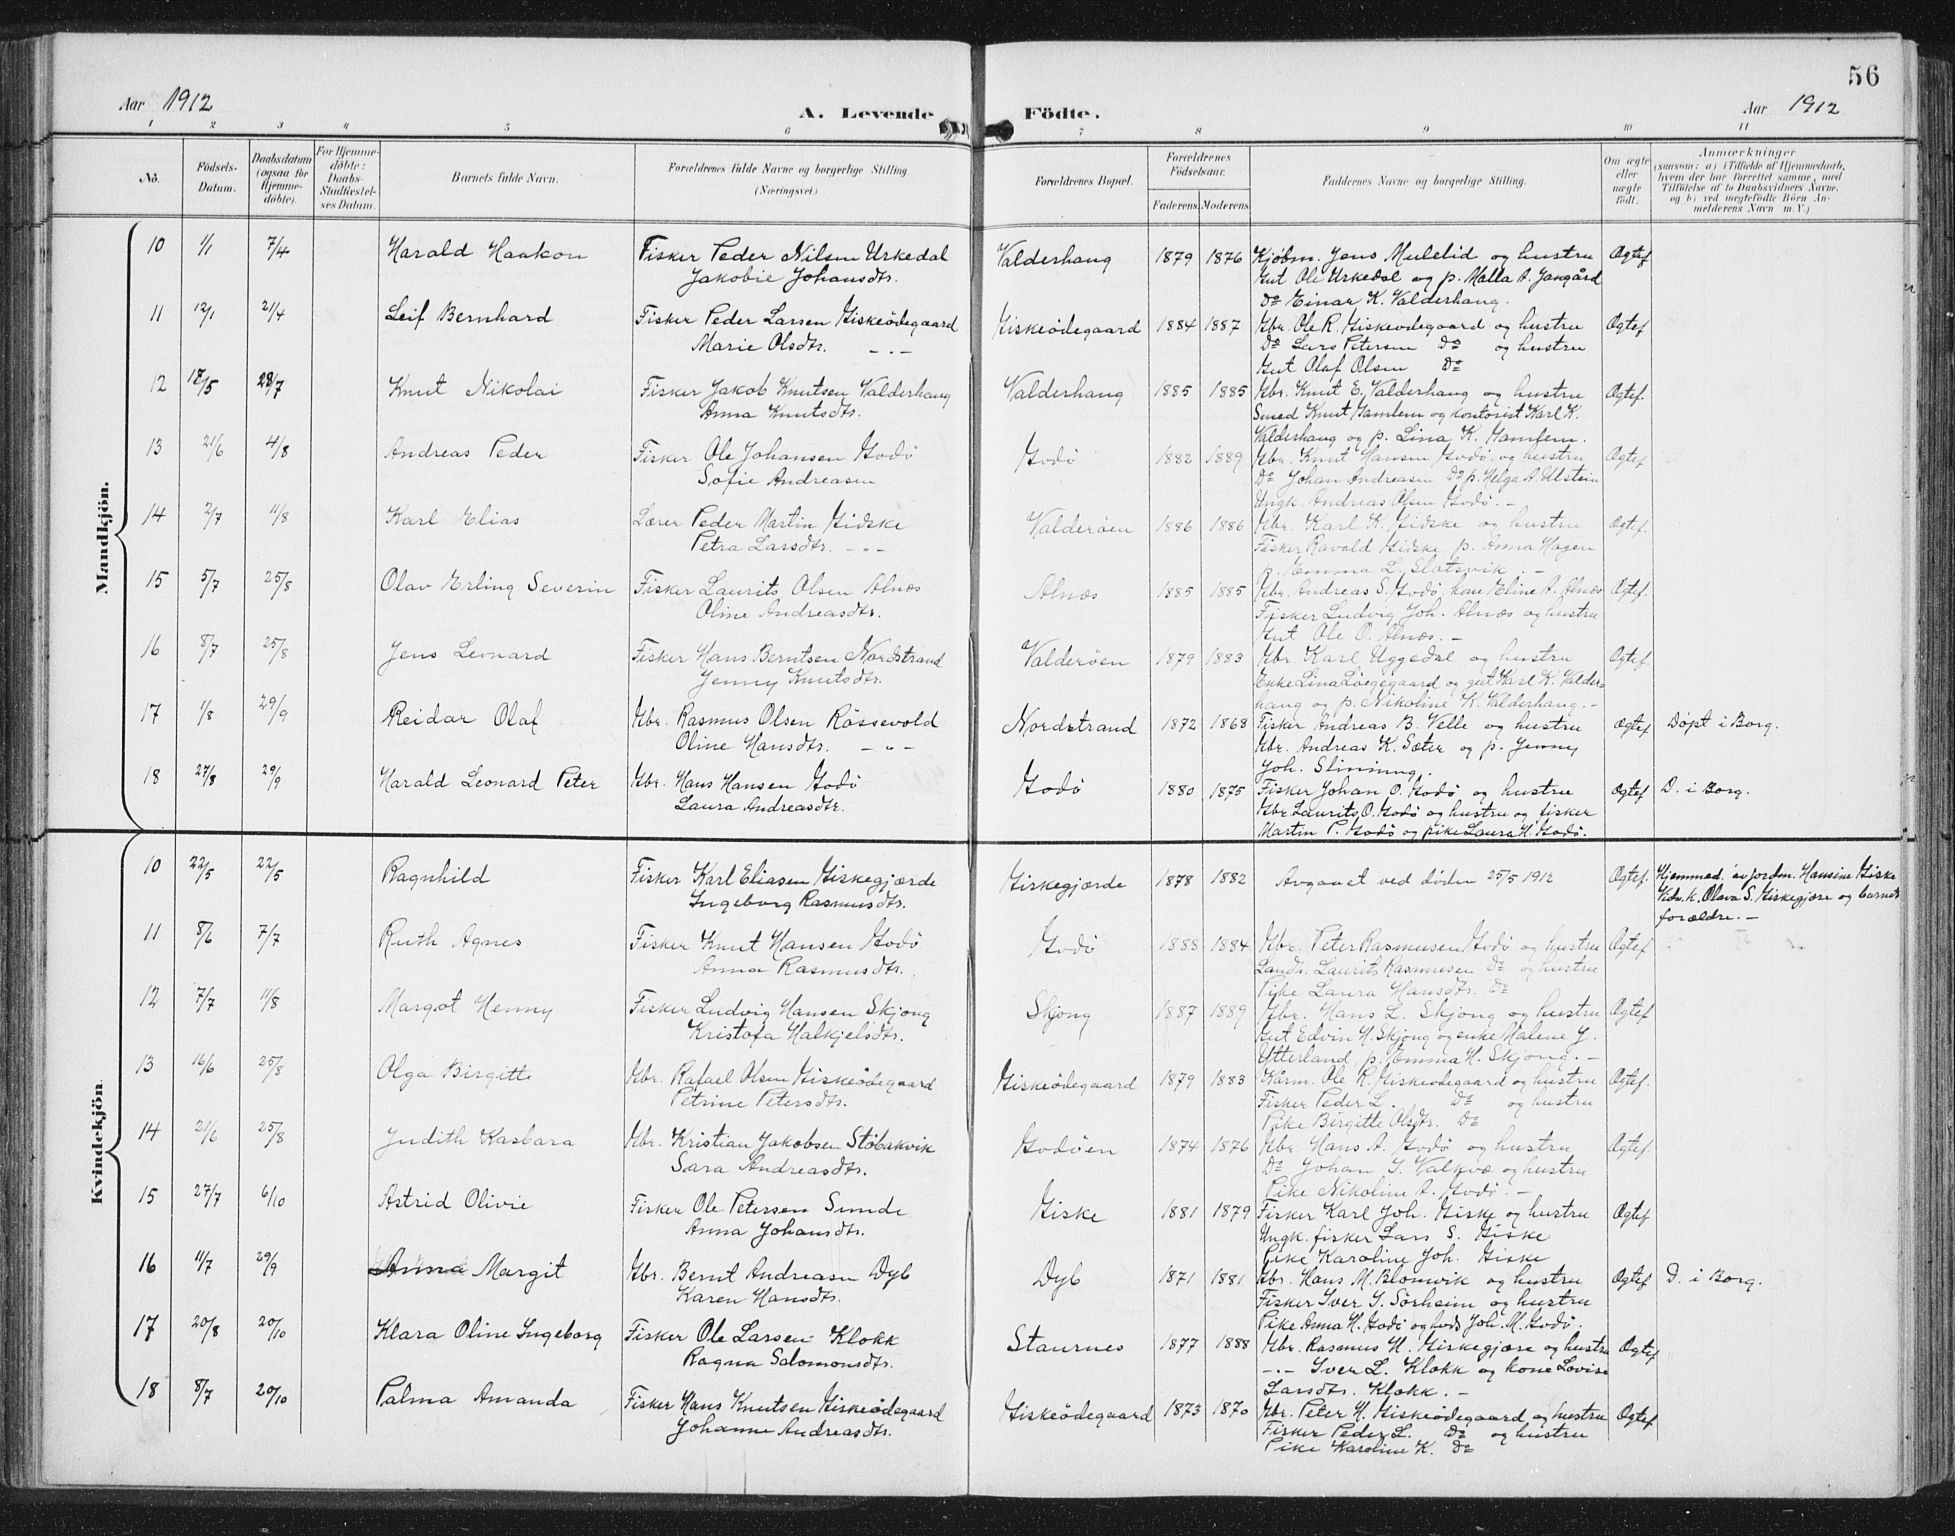 56
Aar 1912
A. Levende Födte.
Aar 1912
1 2 3 4 5 6 7 8 9 10 11
No. Födsels-Datum. Daabsdatum (ogsaa for Hjemme-döbte). For Hjemme-döbte: Daabs-Stadfæstel-ses Datum. Barnets fulde Navn. Forældrenes fulde Navne og borgerlige Stilling. (Næringsvei.) Forældrenes Bopæl. Forældrenes Födselsaar. Faderens Moderens Faddernes Navne og borgerlige Stilling. Om ægte eller uægte födt. Anmærkninger (saasom: a) i Tilfælde af Hjemmedaab, hvem der har forrettet samme, med Tilföielse af to Daabsvidners Navne, og b) ved uægtefödte Börn An-melderens Navn m. V.)
Mandkjön.
10 1/1 7/4 Harald Haakon Fisker Peder Nilsen Urkedal Valderhaug 1879 1876 Kjöbm. Jens Mulelid og hustru Ogtef
Jakobie Johansdtr. Gut Ole Urkedal og p. Malla A. Gangård
Do Einar K. Valderhaug.
11 12/1 21/4 Leif Bernhard Fisker Peder Larsen Giskeödegaard Giskeödegaard 1884 1887 Gbr. Ole R. Giskeodegaard og hustru Ogtef
Marie Olsdtr. -.- Do Lars Petersen Do og hustru
Gut Olaf Olsen Do
12 18/5 28/7 Knut Nikolai Fisker Jakob Knutsen Valderhaug Valderhaug 1885 1885 Gbr. Knut E. Valderhaug og hustru Ogtef.
Anna Knutsdtr. Smed Knut Gamlem og kontorist Karl K.
Valderhaug og p. Lina K. Gamlem.
13 21/6 4/8 Andreas Peder Fisker Ole Johansen Godö Godö 1882 1889 Gbr. Knut Hansen Godö og hustru Ogtef
Sofie Andreasen Do Johan Andreasen Do p. Helga A. Ulstein
Ungk. Andreas Olsen Godö. -
14 2/7 11/8 Karl Elias Lærer Peder Martin Gidske Valderöen 1886 1886 Gbr. Karl K. Gidske og hustru Ogtef.
Petra Larsdtr. -"- Fisker Ravald Gidske, p. Anna Hagen
p. Emma L. Slotsvik. -
15 5/7 25/8 Olav Erling Severin Fisker Laurits Olsen Alnæs Alnæs 1885 1885 Gbr. Andreas S. Godö, kone Eline A. Alnæs Ogtef.
Oline Andreasdtr. Fisker Ludvig Joh. Alnæs og hustru
Gut Ole O. Alnæs. -
16 8/7 25/8 Jens Leonard Fisker Hans Berntsen Nordstrand Valderöen 1879 1883 Gbr. Karl Uggedal og hustru Ogtef.
Jenny Knutsdtr. Enke Lina Löegegaard og gut Karl K. Valder-
haug og p. Nikoline K. Valderhaug. -
17 1/8 29/9 Reidar Olaf Gbr. Rasmus Olsen Rössevold Nordstrand 1872 1868 Fisker Andreas B. Velle og hustru ægtef Döpt i Borg.
Oline Hansdtr. -"- Gbr. Andreas K. Sæter og p. Jenny
Joh. Slinning.
18 27/8 29/9 Harald Leonard Peter Gbr. Hans Hansen Godö Godö 1880 1875 Fisker Johan O. Godö og hustru Ogtef D. i Borg.
Laura Andreasdtr. Gbr Laurits O. Godö og hustru og fisker
Martin P. Godö og pike Laura H. Godö.
Kvindekjön.
10 22/5 22/5 Ragnhild Fisker Karl Eliasen Giskegjærde Giskegjærde 1878 1882 Avgaaet ved döden 25/5 1912 Ogtef. Hjemmed. av jordm. Hansine Giske
Ingeborg Rasmusdtr. Vidn. k. Olava S. Giskegjære og barnets
forældre. -
11 8/6 7/7 Ruth Agnes Fisker Knut Hansen Godö Godö 1888 1884 Gbr. Peter Rasmusen Godö og hustru Ogtef
Anna Rasmusdtr. Landh. Laurits Rasmusen Do og hustru
Pike Laura Hansdtr. Do
12 7/7 11/8 Margot Henny Fisker Ludvig Hansen Skjong Skjong 1887 1889 Gbr. Hans L. Skjong og hustru Ogtef
Kristofa Halkjelsdtr. Gut Edvin H. Skjong og enke Malene J.
Utterland p. Emma H. Skjong. -
13 16/6 25/8 Olga Birgitte Gbr. Rafael Olsen Giskeödegaard Giskeödegaard 1879 1883 Kårm. Ole R. Giskeodegaard og hustru Ogtef.
Petrine Petersdtr. Fisker Peder L. Do og hustru
Pike Birgitte Olsdtr. Do
14 21/6 25/8 Judith Kasbara Gbr. Kristian Jakobsen Stöbakvik Godöen 1874 1876 Gbr. Hans A. Godö og hustru Ogtef.
Sara Andreasdtr. Do Johan J. Valkvæ og hustru
Pike Nikoline A. Godö. -
15 27/7 6/10 Astrid Olivie Fisker Ole Petersen Sunde Giske 1881 1879 Fisker Karl Joh. Giske og hustru Ogtef
Anna Johansdtr. Ungk. fisker Lars S. Giske
Pike Karoline Joh. Giske
16 11/7 29/9 Anna Margit Gbr. Bernt Andreasen Dyb Dyb 1871 1881 Gbr. Hans M. Blomvik og hustru Ogtef D. i Borg.
Karen Hansdtr. Fisker Iver I. Sörheim og hustru
Pike Anna H. Godö og hds Joh. M. Godö.
17 20/8 20/10 Klara Oline Ingeborg Fisker Ole Larsen Klokk Staurnes 1877 1888 Gbr. Rasmus H. Giskegjære og hustru Ogtef
Ragna Salomonsdtr. -.- Iver L. Klokk og kone Lovise
Larsdtr. Klokk. -
18 8/7 20/10 Palma Amanda Fisker Hans Knutsen Giskeödegaard Giskeödegaard 1873 1870 Gbr. Peter H. Giskeödegaard og hustru Ogtef
Johanne Andreasdtr. Fisker Peder L. Do og hustru
Pike Karoline K. Do